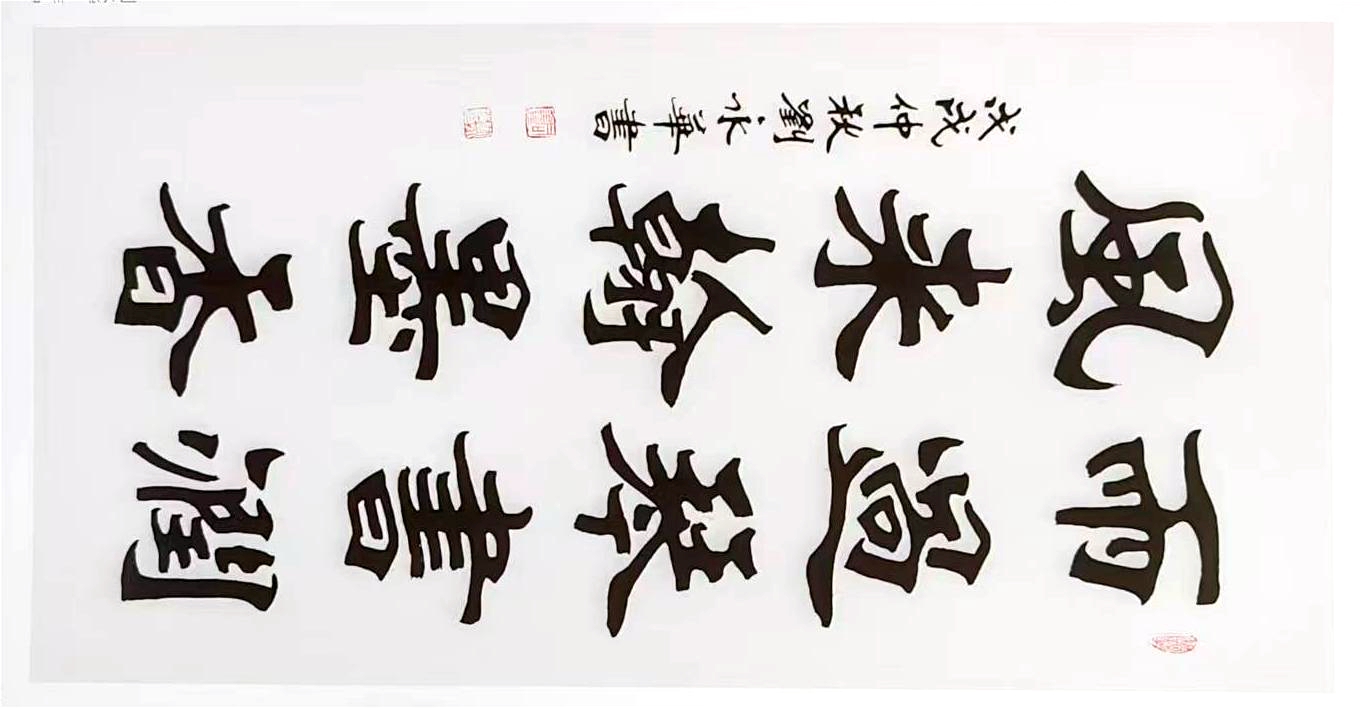 雨過琴書潤
風來翰墨香
戊戌仲秋劉永華書